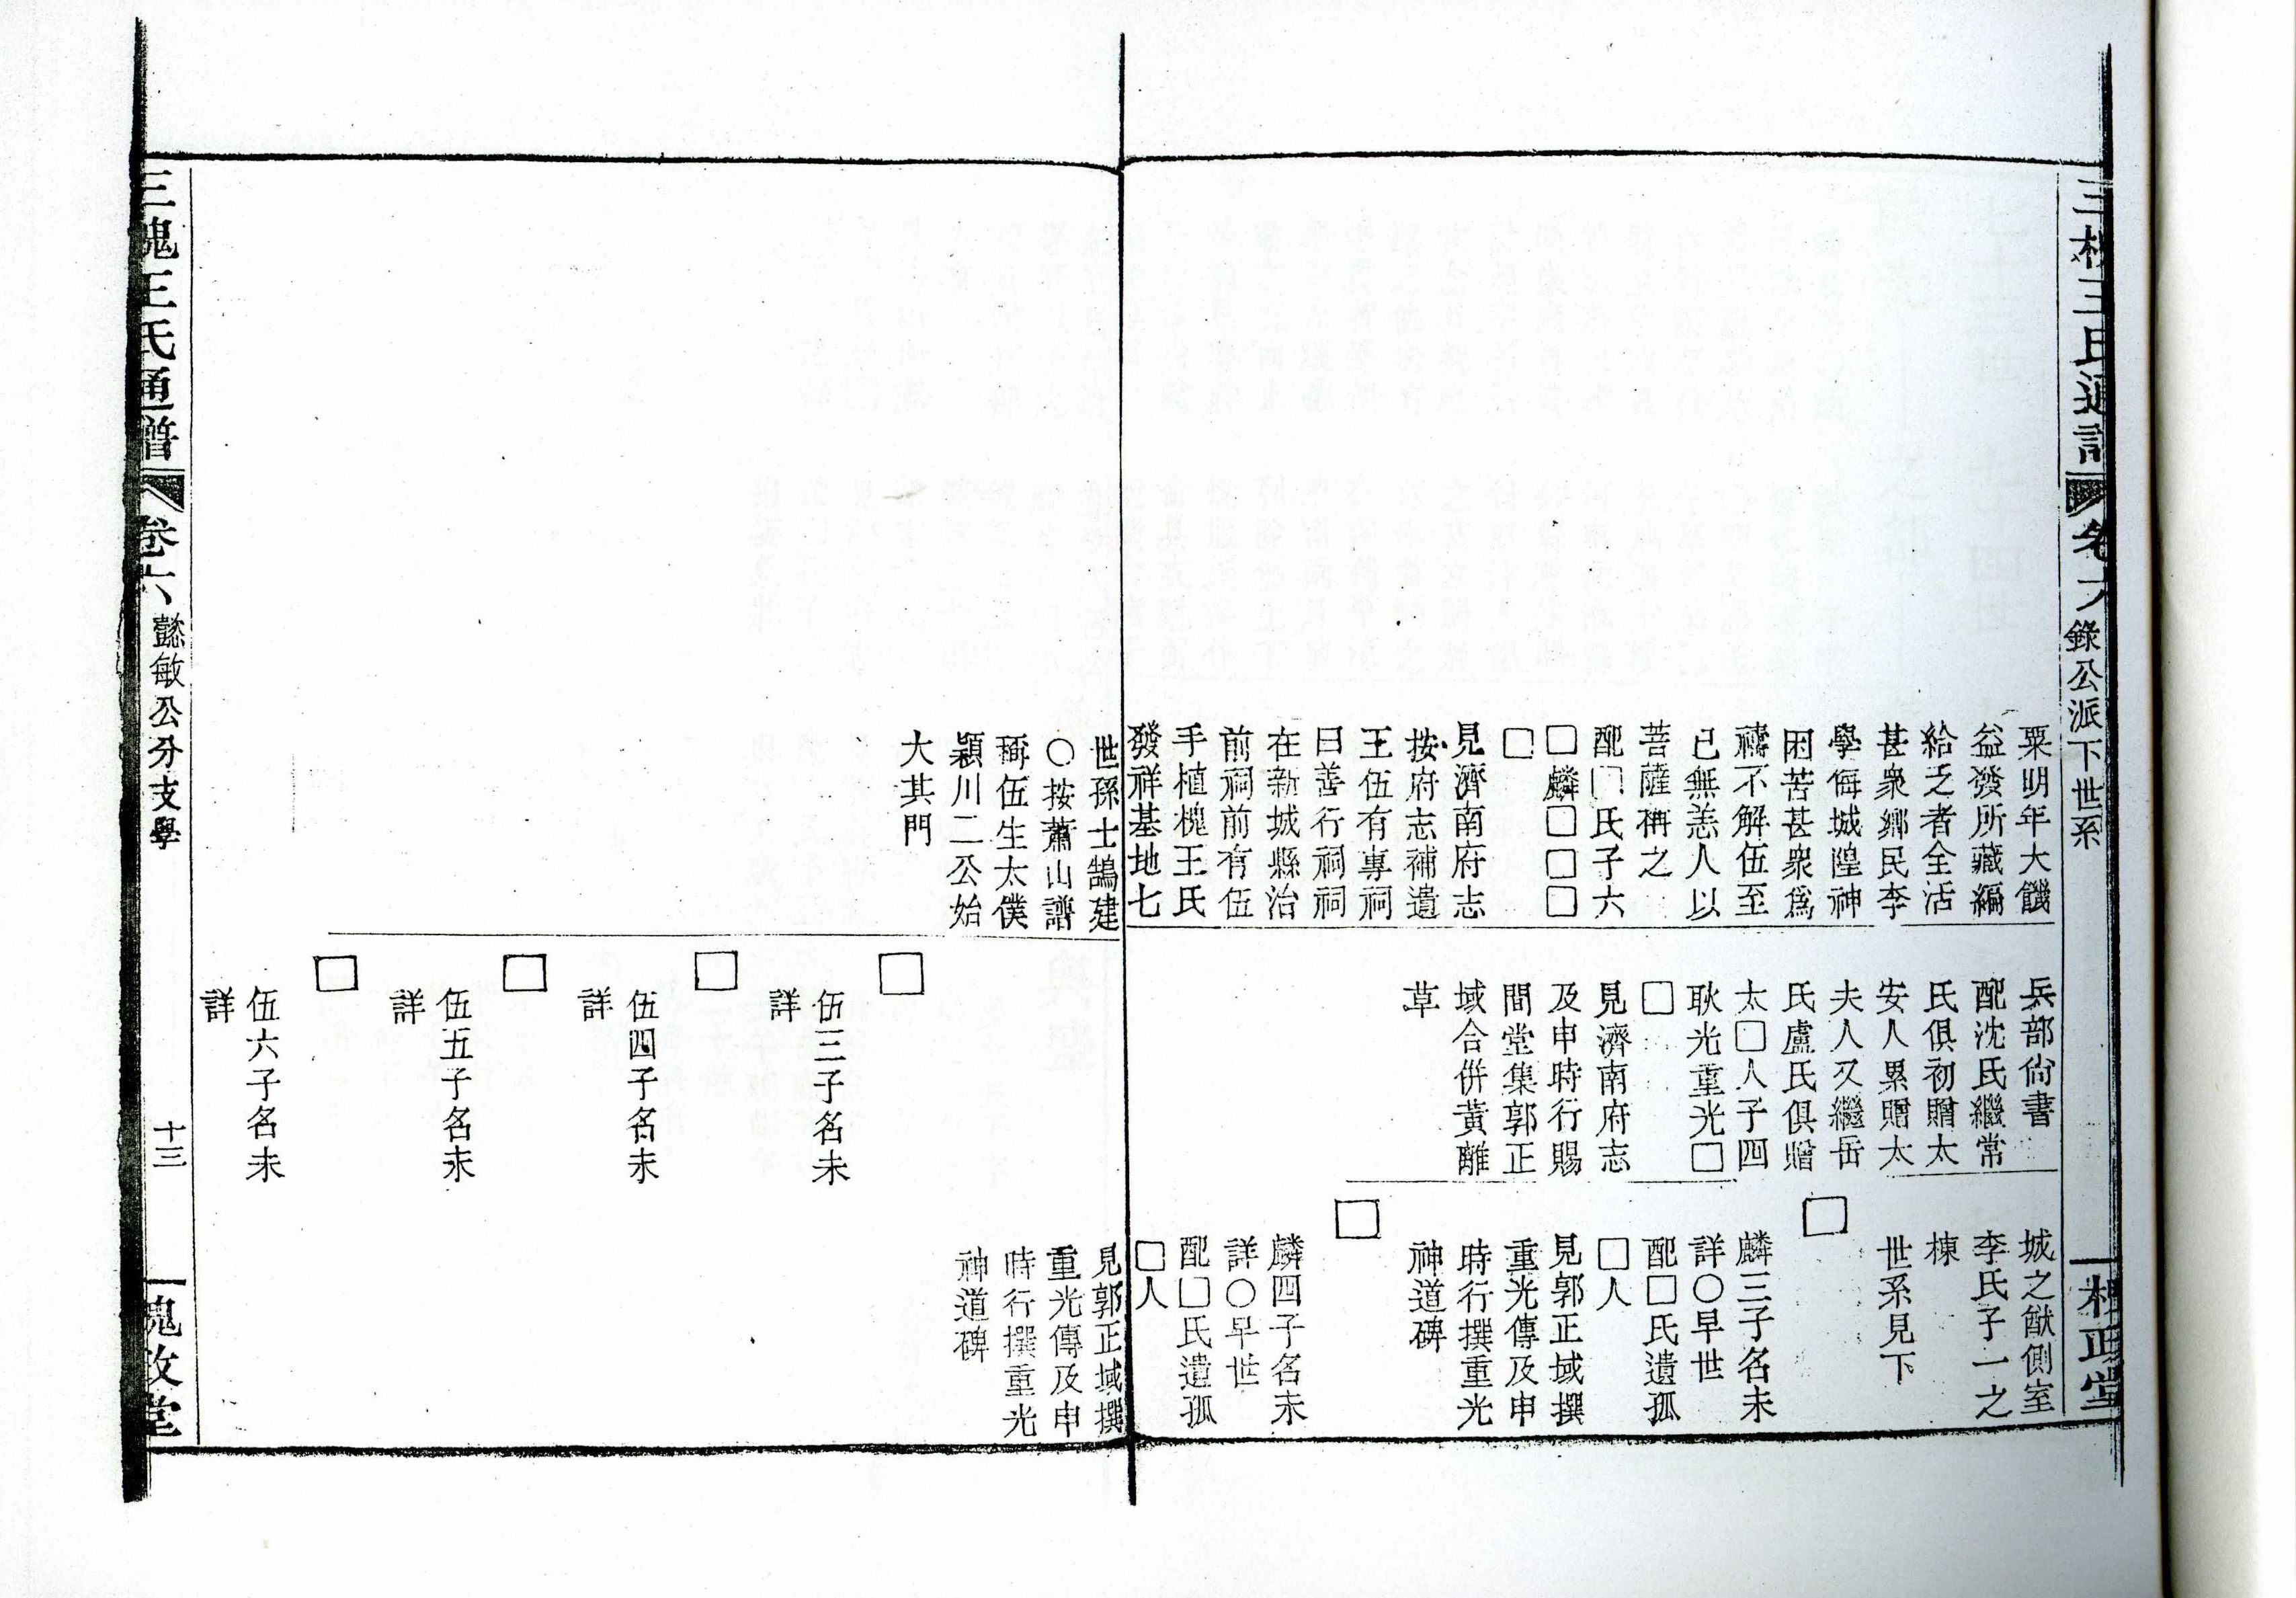 三槐王氏通譜
卷六
錄公派下世系
槐政堂
粟明年大饑
益發所藏編
給之者全活
甚衆鄉民李
學侮城隍神
困苦甚衆爲
禱不解伍至
已無恙人以
菩薩稱之
配□氏子六
□麟□□□
□
見濟南府志
按府志補遺
王伍有專祠
曰善行祠祠
在新城縣治
前祠前有伍
手植槐王氏
發祥基地七
兵部尙書
配沈氏繼常
氏俱初贈太
安人累贈太
夫人又繼岳
氏盧氏俱贈
太□人子四
耿光重光□
□
見濟南府志
及申時行賜
間堂集郭正
域合併黃離
草
城之猷側室
李氏子一之
棟
世系見下
□
麟三子名未
詳○早世
配□氏遺孤
□人
見郭正域撰
重光傳及申
時行撰重光
神道碑
□
麟四子名未
詳○早世
配□氏遺孤
□人
世孫士鵠建
○按蕭山譜
稱伍生太僕
穎川二公始
大其門
□
伍三子名未
詳
□
伍四子名未
詳
□
伍五子名未
詳
□
伍六子名未
詳
見郭正域撰
重光傳及申
時行撰重光
神道碑
三槐王氏通譜
卷六
懿敏公分支學
十三
槐政堂